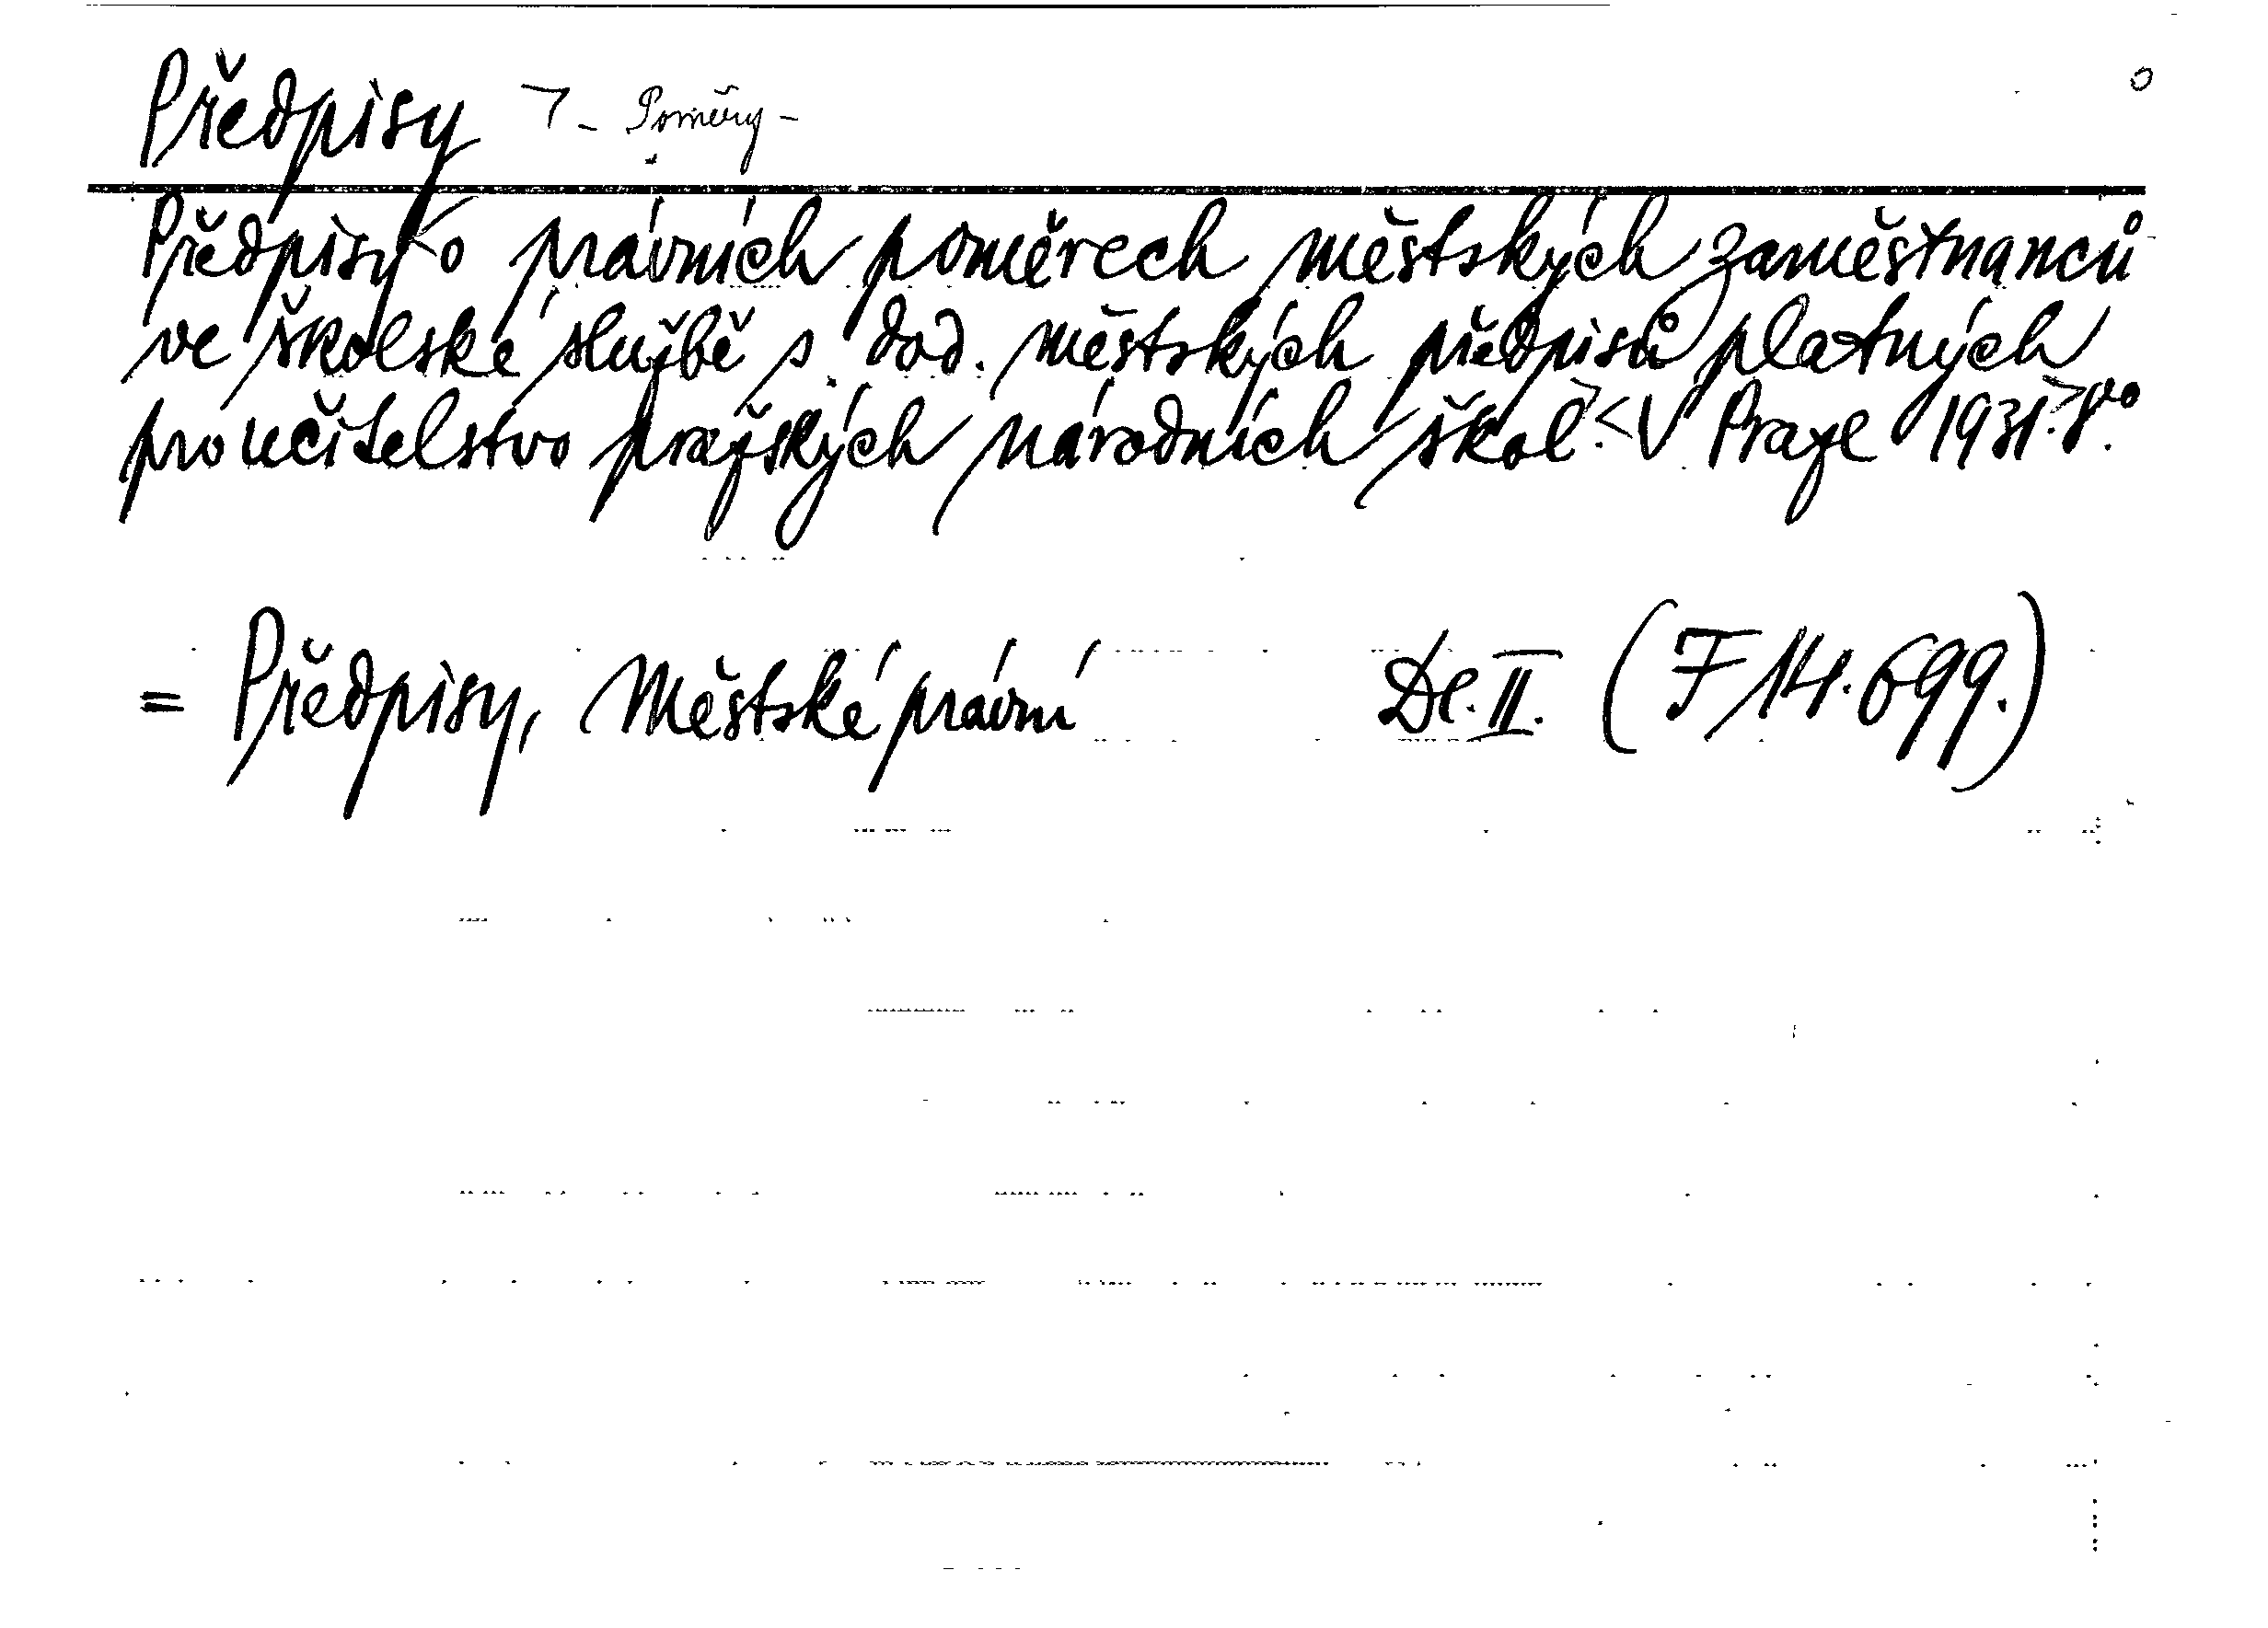 Předpisy 7 - Poměry -
Předpisy < o právních poměrech městských zaměstnanců
ve školské službě s. dod. městských předpisů platných
pro učitelstvo pražských národních škol >. < V Praze 1931. > 8°.
= Předpisy, Městské právní De. II. (F 14.699.)